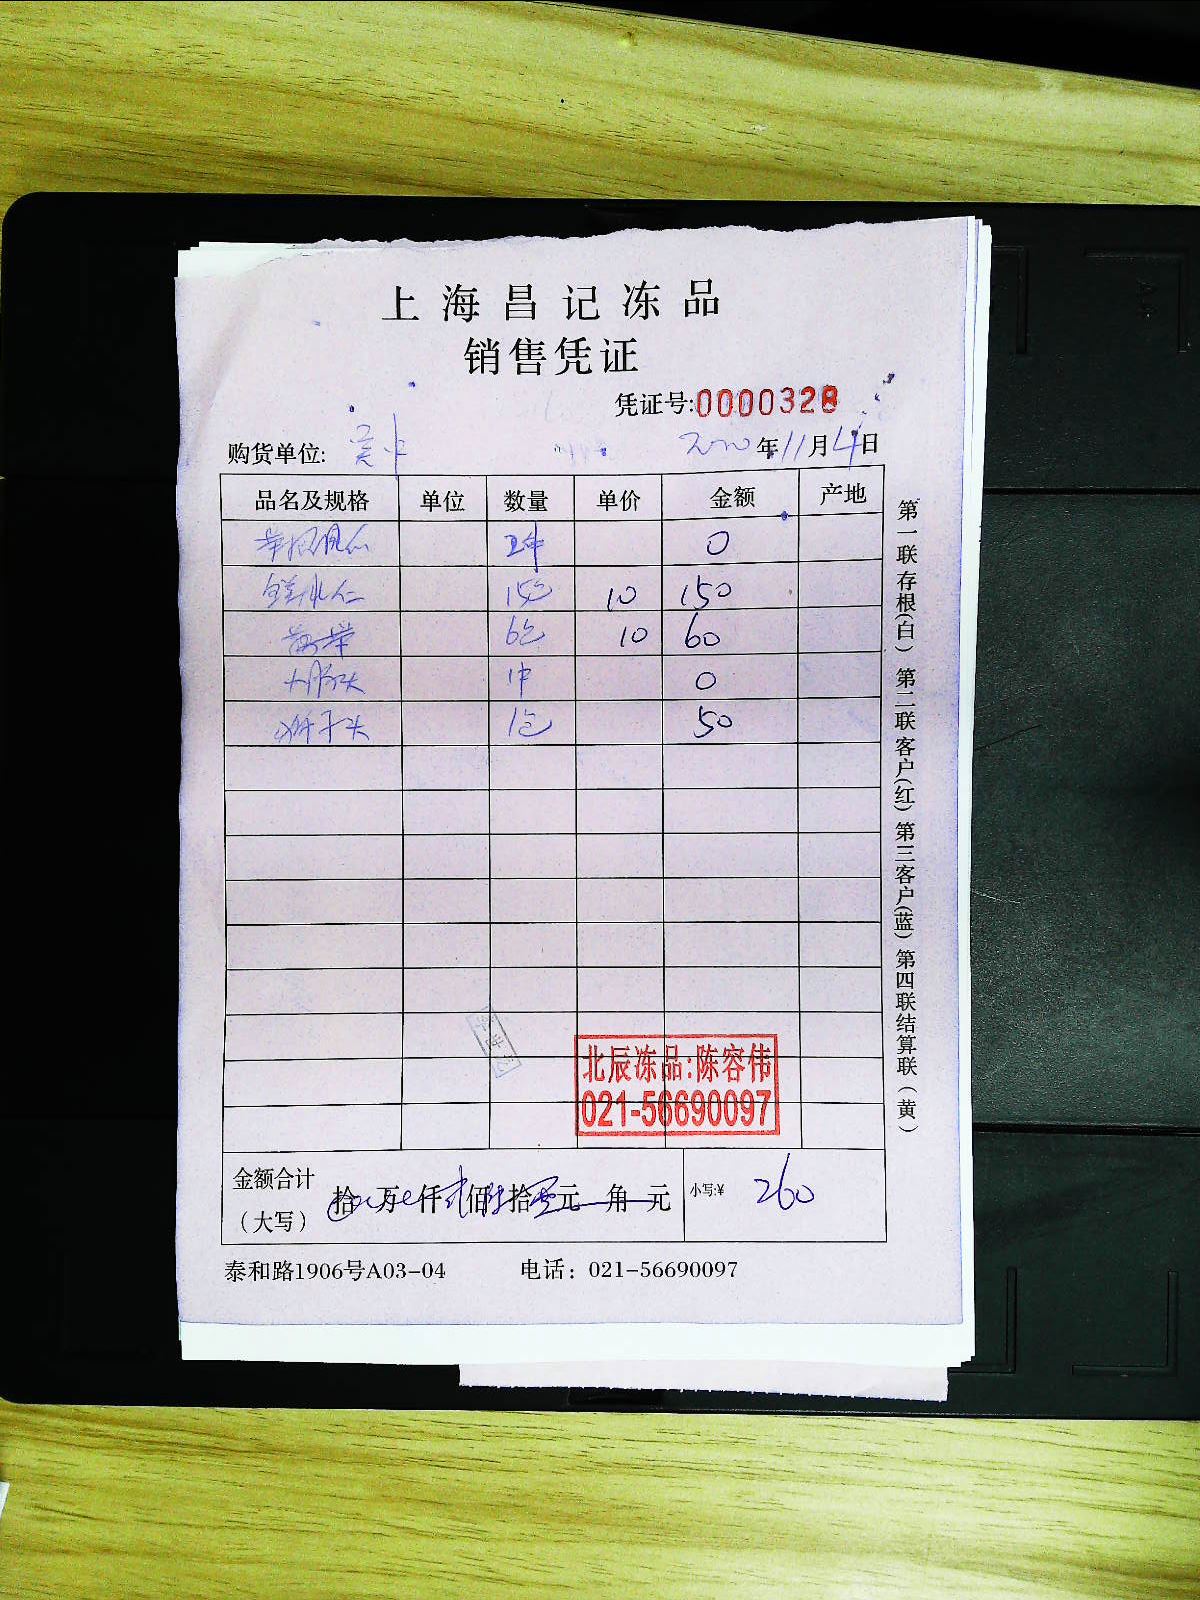 上海昌记冻品
销售凭证
凭证号:0000328
购货单位:
2020年11月4日
品名及规格 单位 数量 单价 金额 产地
2件 0
15包 10 150
6包 10 60
1件 0
狮子头 1包 50
北辰冻品:陈容伟
021-56690097
金额合计
(大写)
拾 万 仟 佰 拾 元 角 元
小写:¥ 260
泰和路1906号A03-04 电话:021-56690097
第一联存根(白) 第二联客户(红) 第三客户(蓝) 第四联结算联(黄)